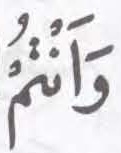 وَاَنْتُمْ